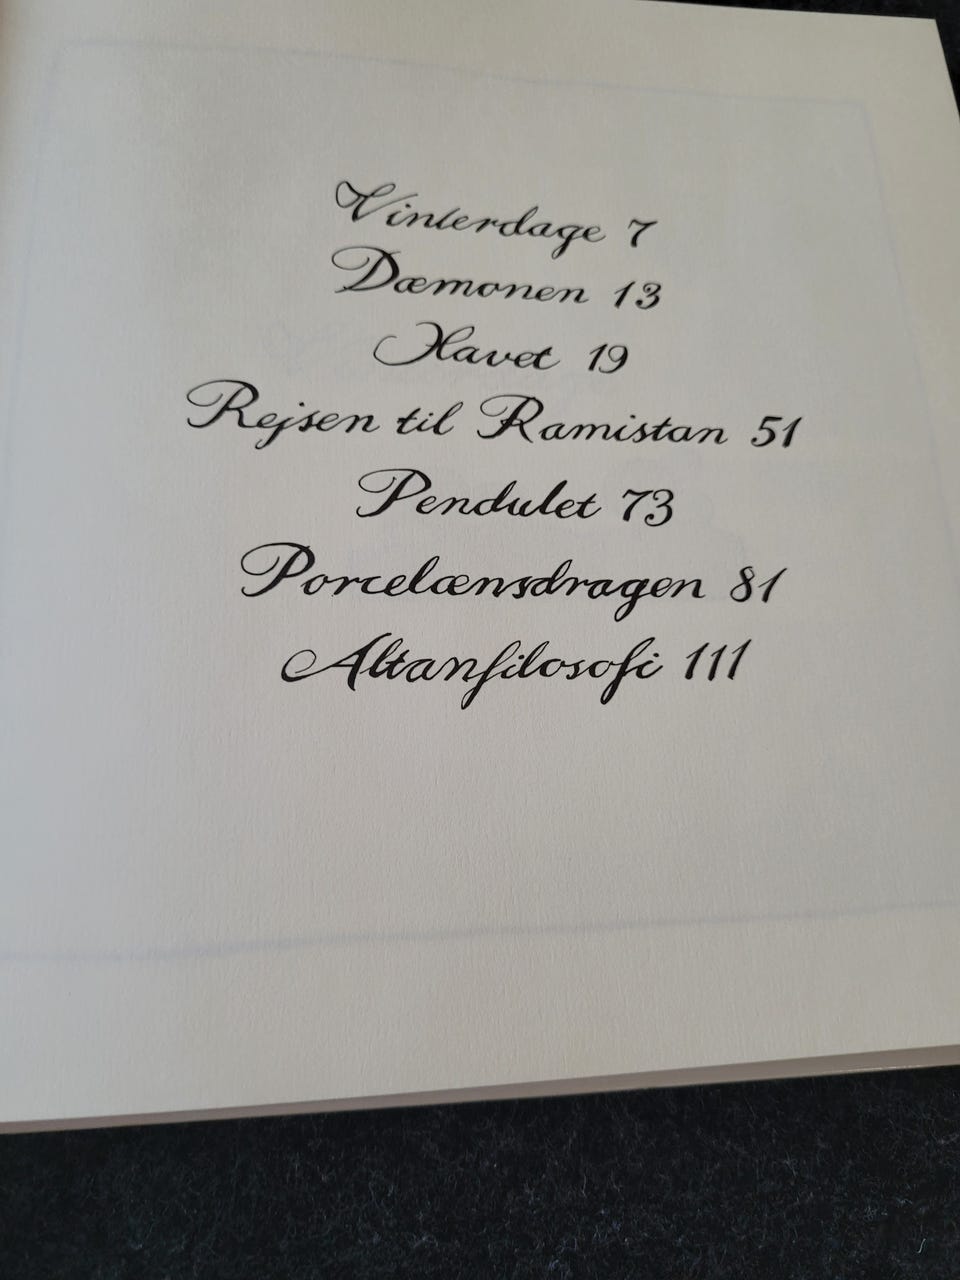 Vinterdage 7
Dæmonen 13
Havet 19
Rejsen til Ramistan 51
Pendulet 73
Porcelænsdragen 81
Altanfilosofi 111